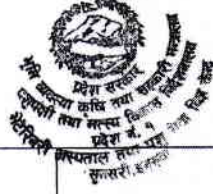 प्रदेश सरकार
भूमि व्यवस्था कृषि तथा सहकारी मन्त्रालय
पशुपंछी तथा मत्स्य विकास निर्देशनालय
प्रदेश नं. १
भेटेरिनरी अस्पताल तथा पशु सेवा विज्ञ केन्द्र
सुनसरी, इनरुवा